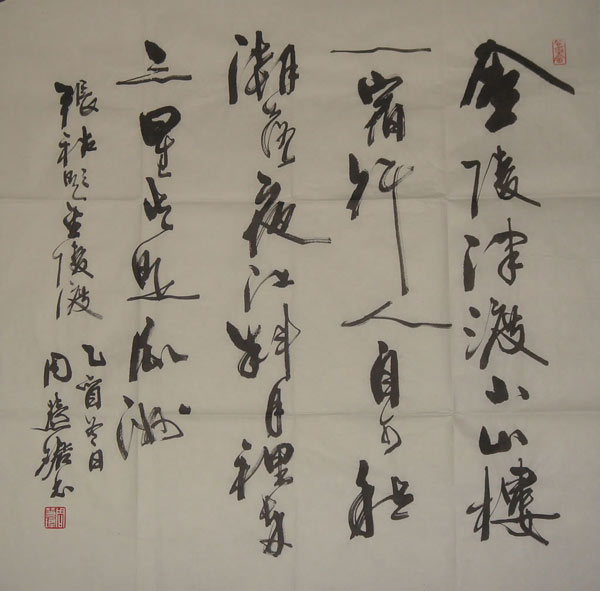 金陵津渡小山樓
一宿行人自可愁
潮落夜江斜月裡兩
三星火是瓜洲
張祜題金陵渡
乙酉冬日
周慧珺书